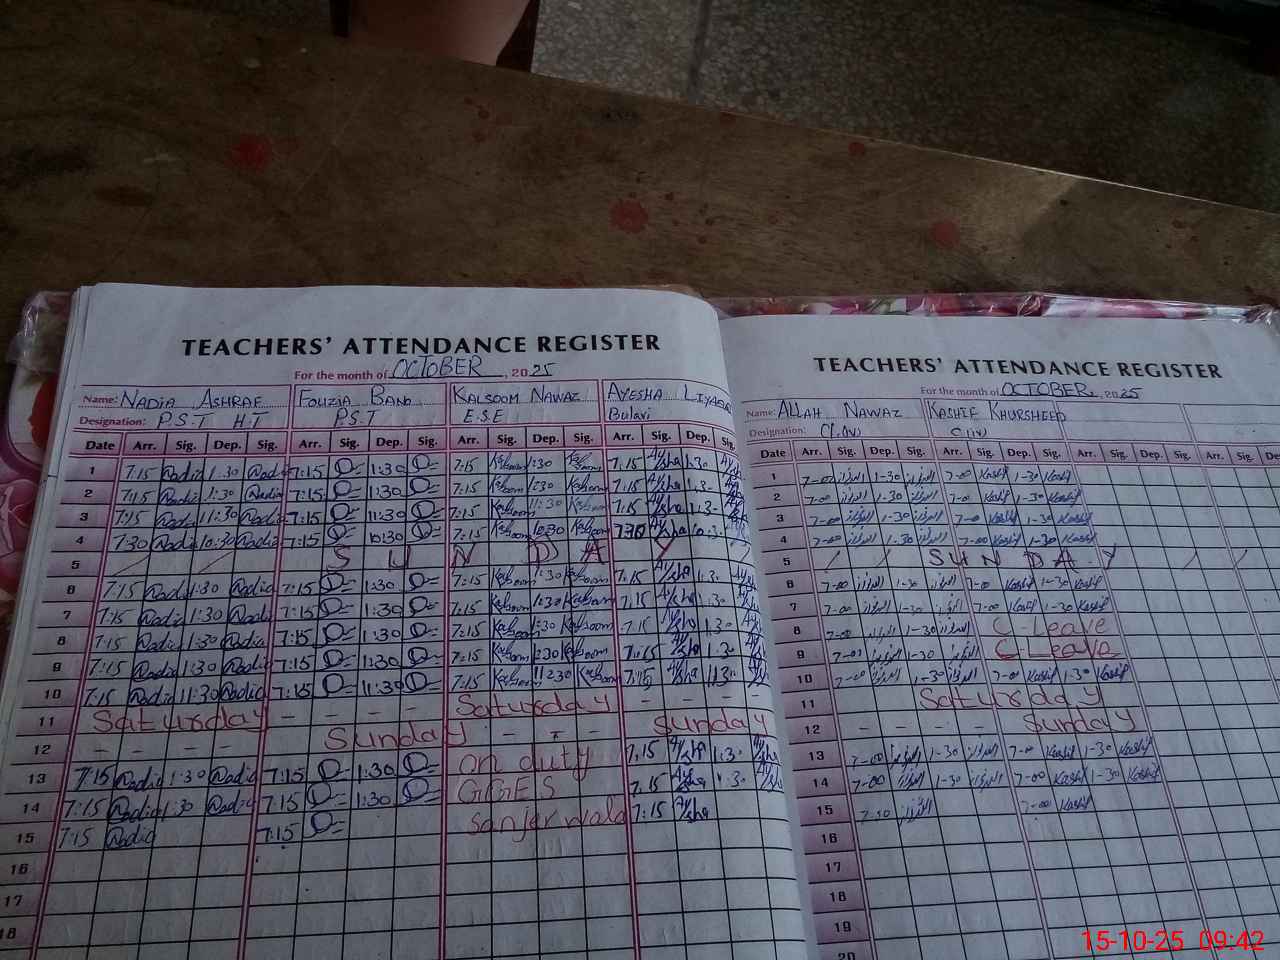 TEACHERS' ATTENDANCE REGISTER
For the month of OCTOBER, 2025
Name: NADIA ASHRAF FOUZIA BANO KALSOOM NAWAZ AYESHA
Designation: P.S.T H.T P.S.T E.S.E
Date Arr. Sig. Dep. Sig. Arr. Sig. Dep. Sig. Arr. Sig. Dep. Sig. Arr. Sig. Dep. Sig.
1 7:15 Nadia 1:30 Nadia 7:15 1:30 7:15 Kalsoom 1:30 Kalsoom 7:15 Aysha 1:30 Aysha
2 7:15 Nadia 1:30 Nadia 7:15 1:30 7:15 Kalsoom 1:30 Kalsoom 7:15 Aysha 1:30
3 7:15 Nadia 11:30 Nadia 7:15 11:30 7:15 Kalsoom 11:30 Kalsoom 7:15 Aysha
4 7:30 Nadia 10:30 Nadia 7:15 10:30 7:15 Kalsoom 10:30 Kalsoom 7:30 Aysha
5 SUNDAY
6 7:15 Nadia 1:30 Nadia 7:15 1:30 7:15 Kalsoom 1:30 Kalsoom 7:15 Aysha 1:3
7 7:15 Nadia 1:30 Nadia 7:15 1:30 7:15 Kalsoom 1:30 Kalsoom 7:15 Aysha 1:30
8 7:15 Nadia 1:30 Nadia 7:15 1:30 7:15 Kalsoom 1:30 Kalsoom 7:15 Aysha 1:30
9 7:15 Nadia 1:30 Nadia 7:15 1:30 7:15 Kalsoom 1:30 Kalsoom 7:15 Aysha 1:30
10 7:15 Nadia 11:30 Nadia 7:15 11:30 7:15 Kalsoom Kalsoom 7:15 Aysha
11 Saturday - - - - Saturday - - Sunday
12 - - - - Sunday - - -
13 7:15 Nadia 1:30 Nadia 7:15 1:30 on duty 7:15 Aysha 1:30 Aysha
14 7:15 Nadia 1:30 Nadia 7:15 1:30 GGES 7:15 Aysha 1:30 Aysha
15 7:15 Nadia 7:15 Sanjer wala 7:15 Aysha
16
17
18
TEACHERS' ATTENDANCE REGISTER
For the month of OCTOBER, 2025
Name: ALLAH NAWAZ KASHIF KHURSHEED
Designation:
Date Arr. Sig. Dep. Sig. Arr. Sig. Dep. Sig. Arr. Sig. Dep. Sig. Arr. Sig. De
1 7-00 1-30 7-00 Kashif 1-30 Kashif
2 7-00 1-30 7-00 Kashif 1-30 Kashif
3 7-00 1-30 7-00 Kashif 1-30 Kashif
4 7-00 1-30 7-00 Kashif 1-30 Kashif
5 SUNDAY
6 7-00 1-30 7-00 Kashif 1-30 Kashif
7 7-00 1-30 7-00 Kashif 1-30 Kashif
8 7-00 1-30 C-Leave
9 7-00 1-30 C-Leave
10 7-00 1-30 7-00 Kashif 1-30 Kashif
11 Saturday
12 - - - - Sunday
13 7-00 1-30 7-00 Kashif 1-30 Kashif
14 7-00 1-30 7-00 Kashif 1-30 Kashif
15 7-00 Kashif
16
17
18
19
20
15-10-25 09:42